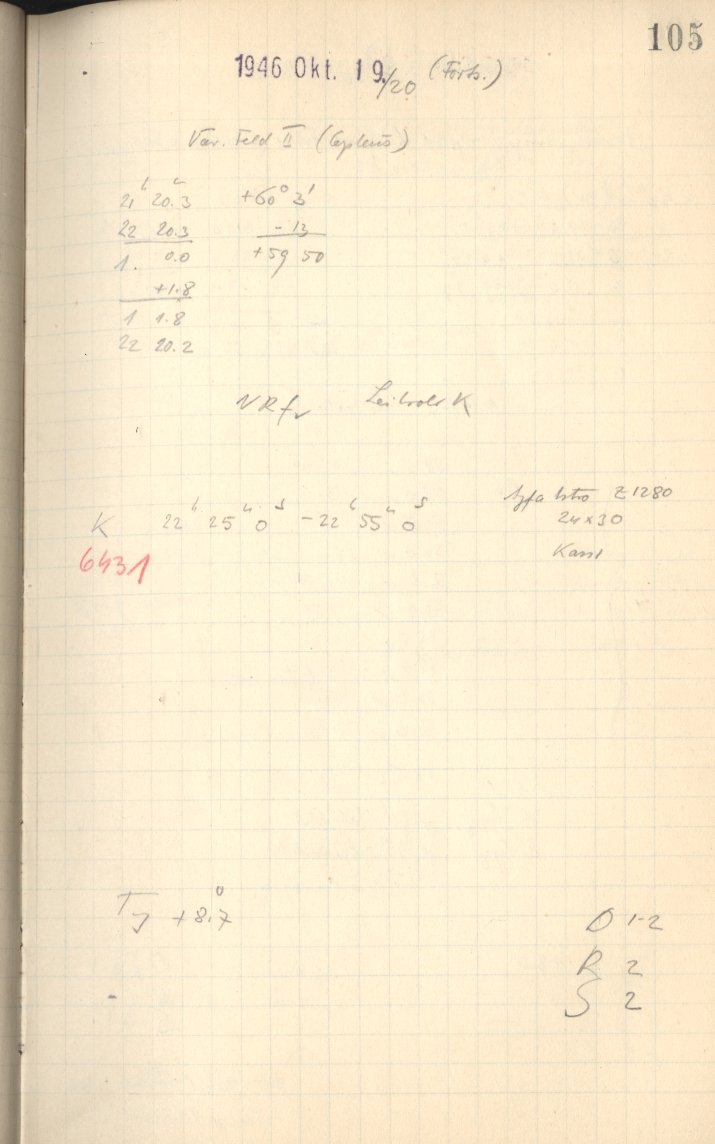 105
1946 Okt. 19./20 (Forts.)
Var. Feld II (Cepheus)
21h 20.3 +60° 3'
22 20.3 - 13
1. 0.0 +59 50
+1.8
1 1.8
22 20.2
Leitrohr K
K 22h 25m 0s - 22h 55m 0s
Agfa Astro Z1280
24x30
6431
Kass1
T +8.7°
D 1-2
R 2
S 2